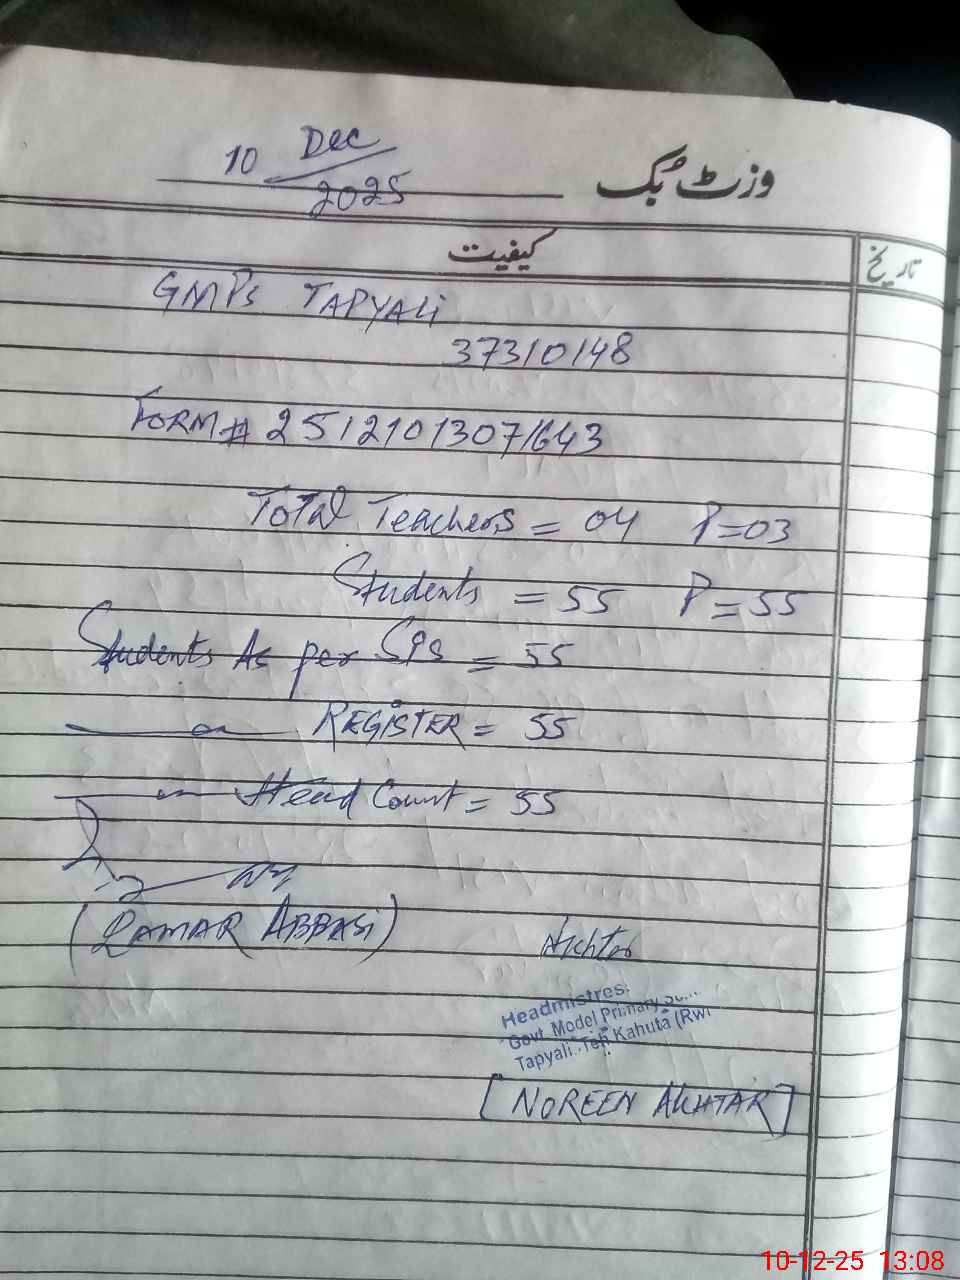 10 Dec
2025
وزٹ بُک
کیفیت
تاریخ
GMPS TAPYALi
37310148
FORM # 25121013071643
Total Teachers = 04 P=03
Students = 55 P=55
Students As per SIS = 55
——— 〃 ——— REGISTER = 55
——— 〃 ——— Head Count = 55
(QAMAR ABBASi)
Akhtar
Headmistress
Govt. Model Primary
Tapyali. Teh Kahuta (Rwl
[NOREEN AKHTAR]
10-12-25 13:08